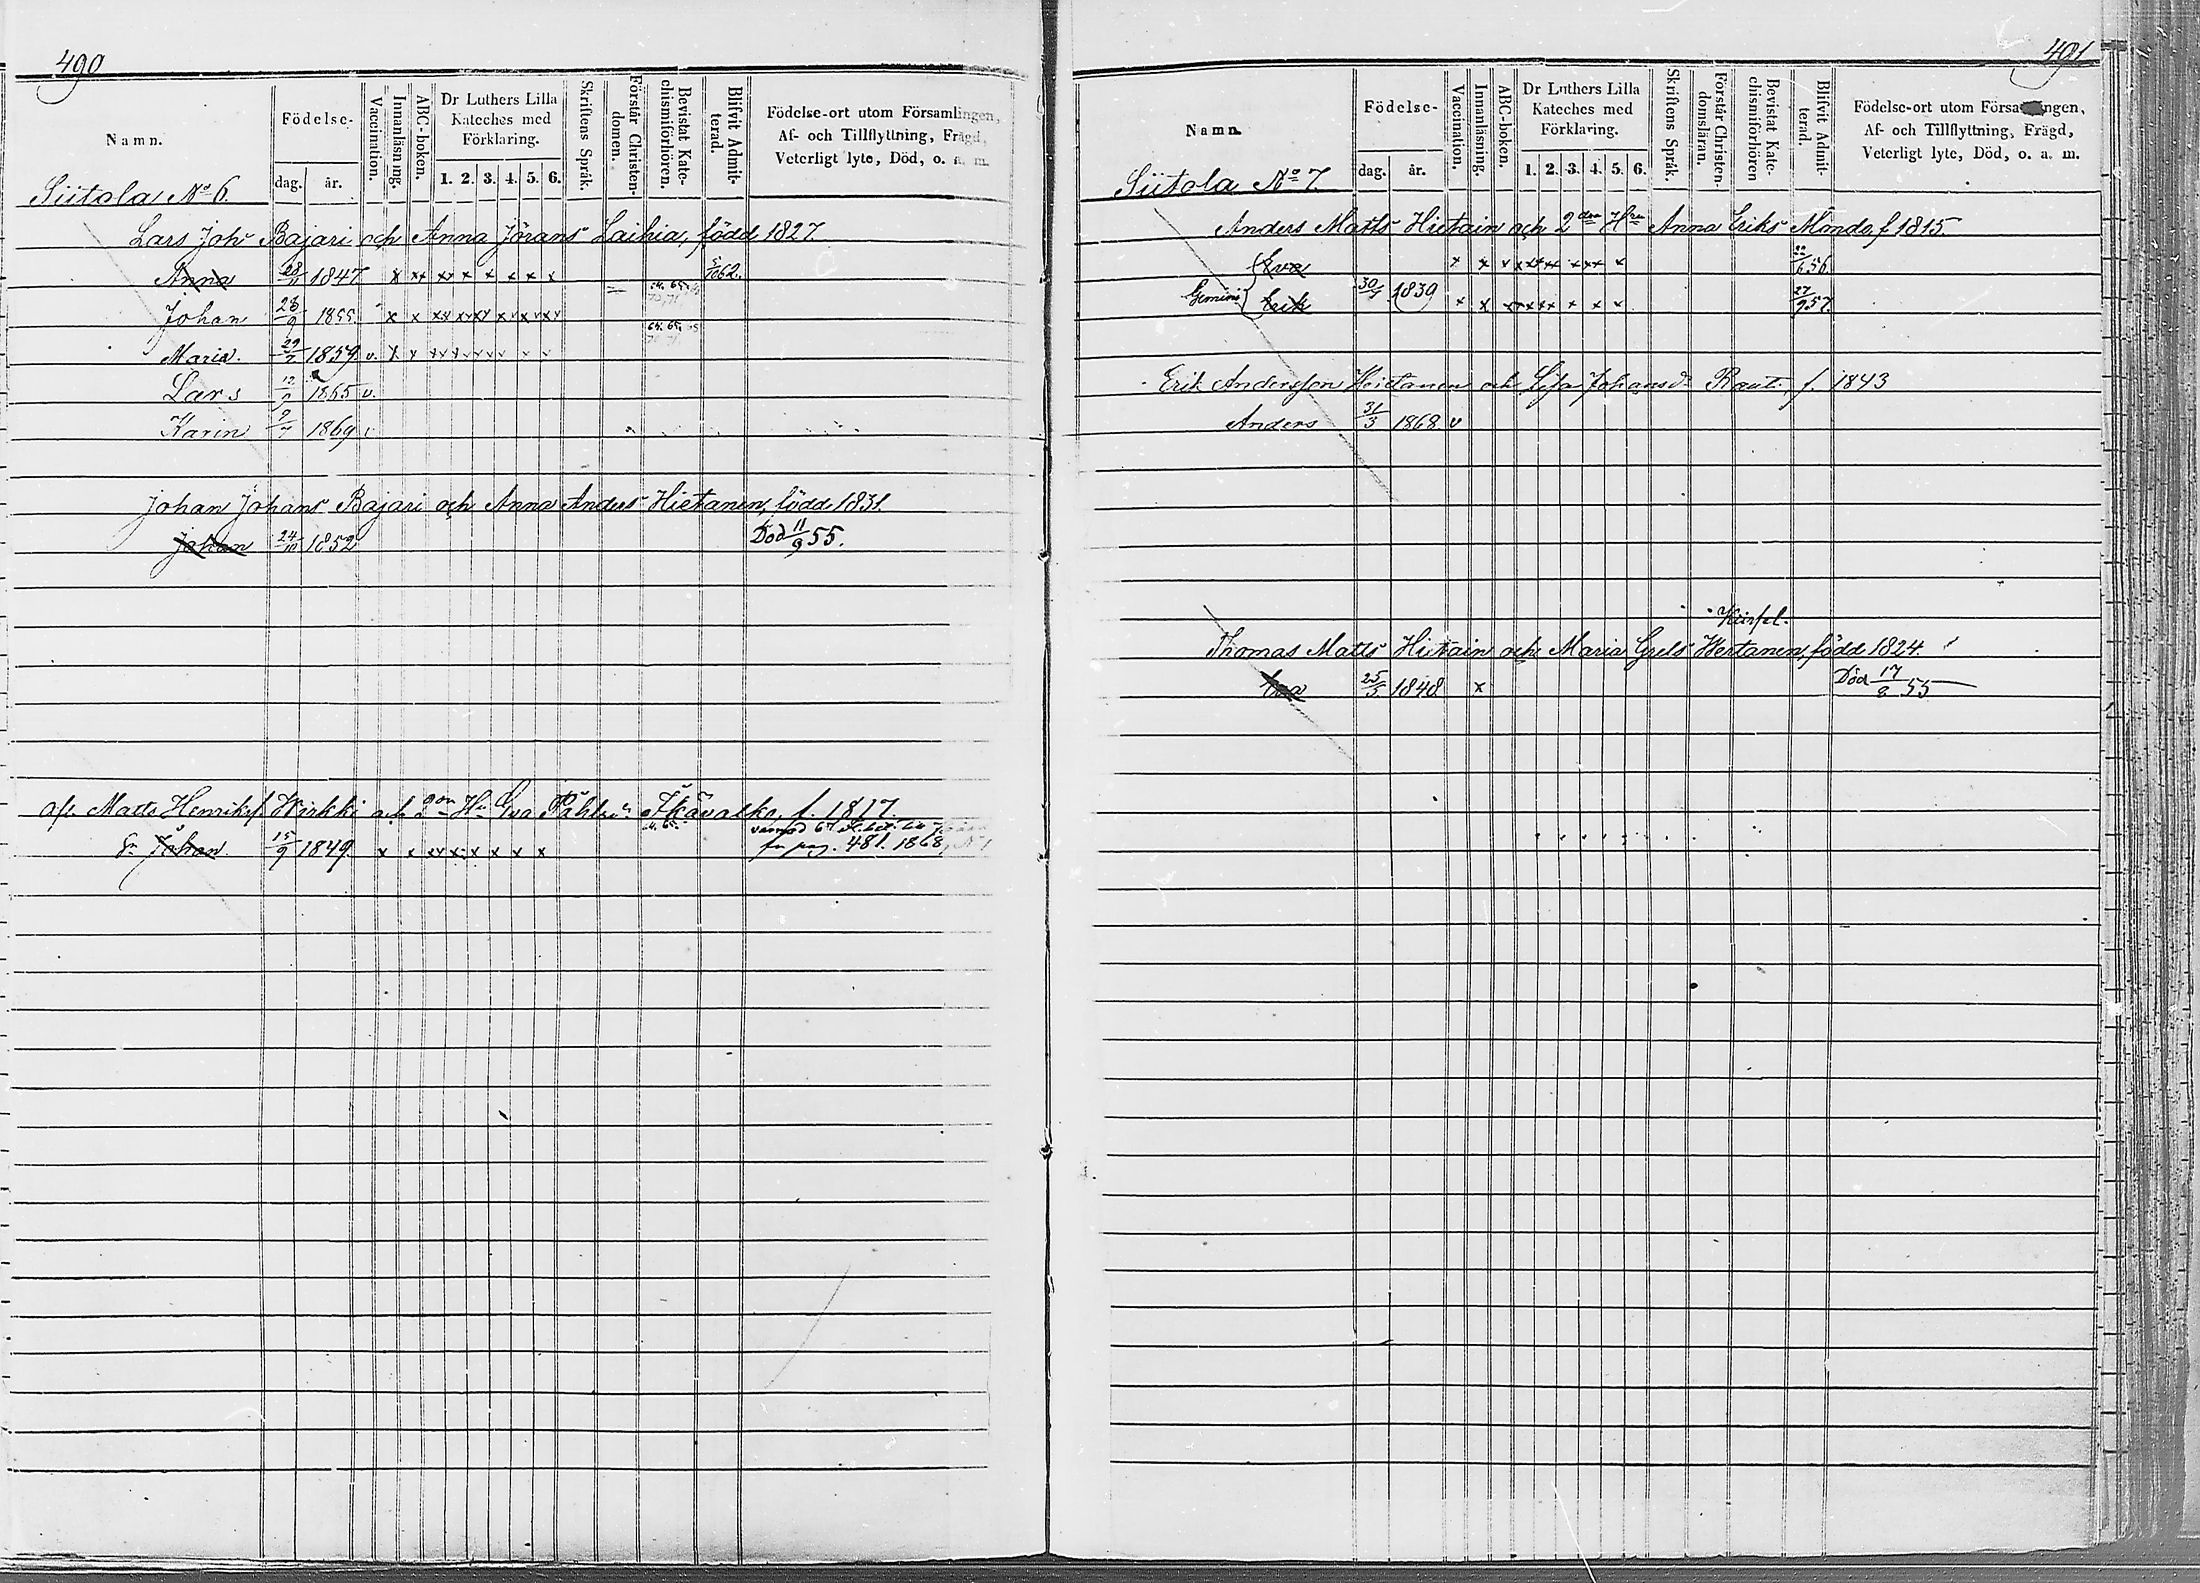 490
Namn.
Födelse-
dag. år.
Vaccination.
Innanläsning.
ABC-boken.
Dr Luthers Lilla Kateches med Förklaring.
1. 2. 3. 4. 5. 6.
Skriftens Språk.
Förstår Christendomen.
Bevistat Katechismiförhören.
Blifvit Admitterad.
Födelse-ort utom Församlingen,
Af- och Tillflyttning, Frägd,
Veterligt lyte, Död, o. a. m.
Siitola No 6.
Lars Johs Bajari och Anna Jörans Laihia, född 1827.
Anna 1847 x xx xx x x x x x 5/10 62.
Johan 23/9 1855 x x xx xx xx x x x
64. 65.
Maria. 29/2 1859 v. x x
Lars 1865 v.
Karin 1869 v
Johan Johans Bajari och Anna Anders Hietanen, född 1831.
Johan 24/10 1852 Död 11/9 55.
afl. Matts Henriksf. Wirkki och 2dra Hu Eva Påhls Äkävalko, f. 1817.
Sn Johan. 15/9 1849. x x xx x x x x x
pag. 481. 1868
491
Namn.
Födelse-
dag. år.
Vaccination.
Innanläsning.
ABC-boken.
Dr Luthers Lilla Kateches med Förklaring.
1. 2. 3. 4. 5. 6.
Skriftens Språk.
Förstår Christendomsläran.
Bevistat Katechismiförhören
Blifvit Admitterad.
Födelse-ort utom Församlingen,
Af- och Tillflyttning, Frägd,
Veterligt lyte, Död, o. a. m.
Siitola No 7.
Anders Matts Hietain och 2dra Hru Anna Eriks Mondo, f 1815.
Eva 22/6 56.
Gemini 30/ 1839
Erik 27/9 57.
Erik Andersson Hietanen och Lisa Johansdr Raut. f. 1843
Anders 31/3 1868. v
Thomas Matts Hietain och Maria Grels Wertanen, född 1824.
Eva 25/3 1848 x Död 17/8 55